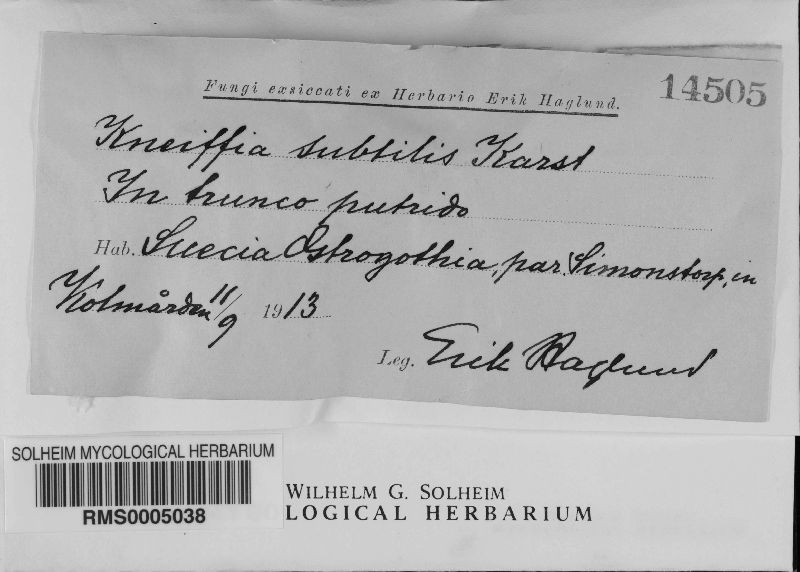 Fungi exsiccati ex Herbario Erik Haglund. 14505
Kneiffia subtilis Karst
In trunco putrido
Hab. Suecia Ostrogothia, par. Simonstorp, in
Kolmården 11/9 1913
Leg. Erik Haglund
SOLHEIM MYCOLOGICAL HERBARIUM
RMS0005038
WILHELM G. SOLHEIM
LOGICAL HERBARIUM